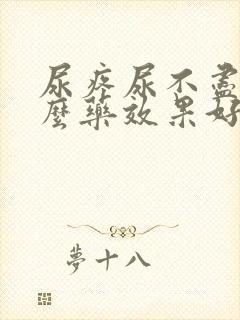 尿疼尿不盡
麼藥效果好
夢十八